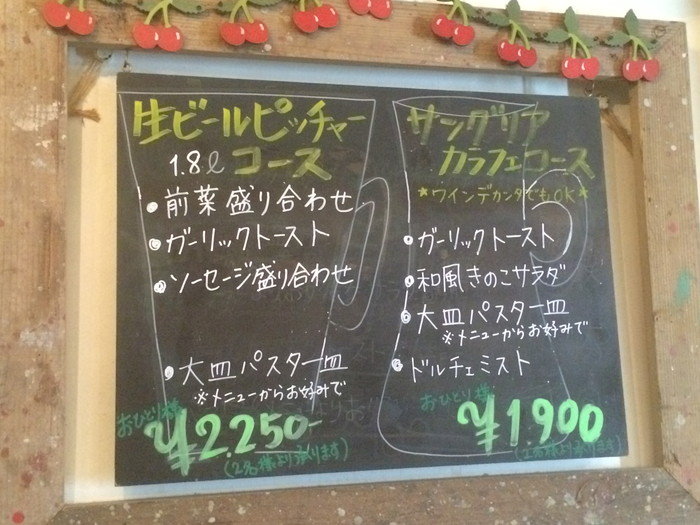 生ビールピッチャー
1.8ℓ コース
・前菜盛り合わせ
・ガーリックトースト
・ソーセージ盛り合わせ
・大皿パスタ一皿
※メニューからお好みで
おひとり様
¥2.250-
(2名様より承ります)
サングリア
カラフェコース
*ワインデカンタでもOK*
・ガーリックトースト
・和風きのこサラダ
・大皿パスタ一皿
※メニューからお好みで
・ドルチェミスト
おひとり様
¥1.900
(2名様より承ります)